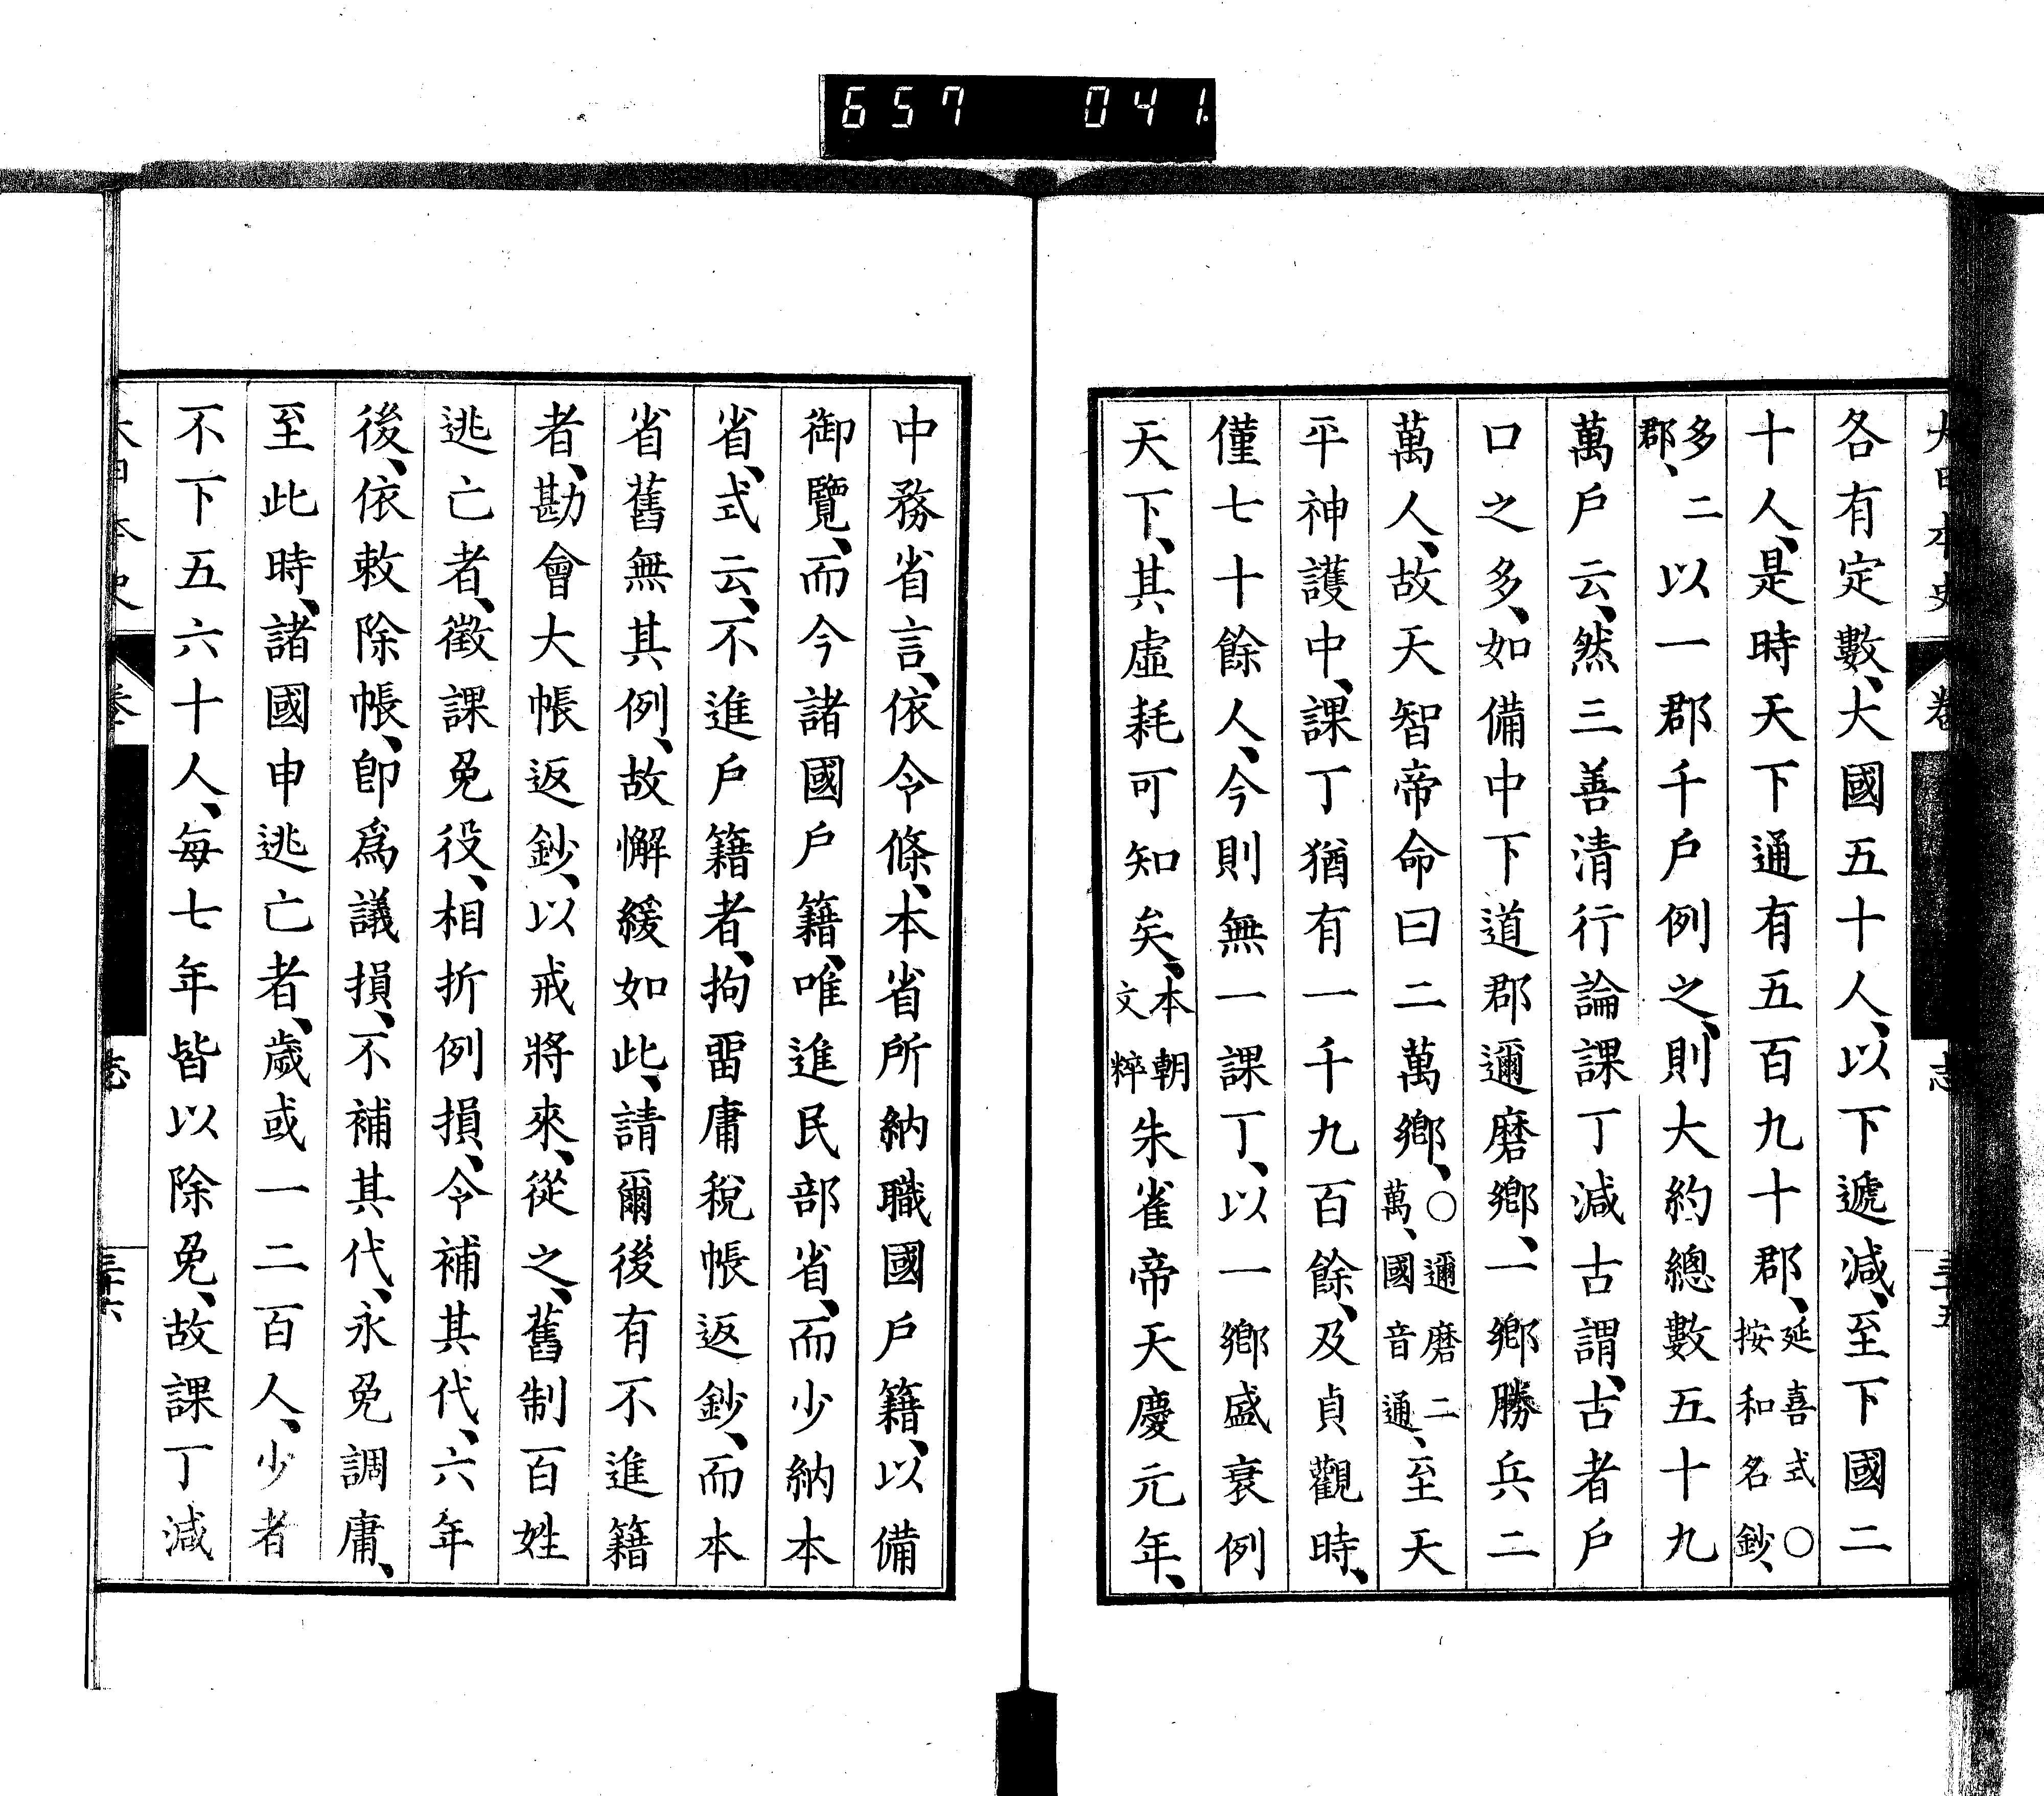 657 041
大日本史 卷 志 三十五
各有定數、大國五十人、以下遞減、至下國二
十人、是時天下通有五百九十郡、延喜式○按和名鈔、
多二郡、以一郡千戶例之、則大約總數五十九
萬戶云、然三善清行論課丁減古謂、古者戶
口之多、如備中下道郡邇磨鄉、一鄉勝兵二
萬人、故天智帝命曰二萬鄉、○邇磨二萬、國音通、至天
平神護中、課丁猶有一千九百餘、及貞觀時、
僅七十餘人、今則無一課丁、以一鄉盛衰例
天下、其虛耗可知矣、本朝文粹朱雀帝天慶元年、
中務省言、依令條、本省所納職國戶籍、以備
御覽、而今諸國戶籍、唯進民部省、而少納本
省、式云、不進戶籍者、拘畱庸稅帳返鈔、而本
省舊無其例、故懈緩如此、請爾後有不進籍
者、勘會大帳返鈔、以戒將來、從之、舊制百姓
逃亡者、徵課免役、相折例損、令補其代、六年
後、依敕除帳、卽爲議損、不補其代、永免調庸、
至此時、諸國申逃亡者、歲或一二百人、少者
不下五六十人、每七年皆以除免、故課丁減
大日本史 卷 志 三十六